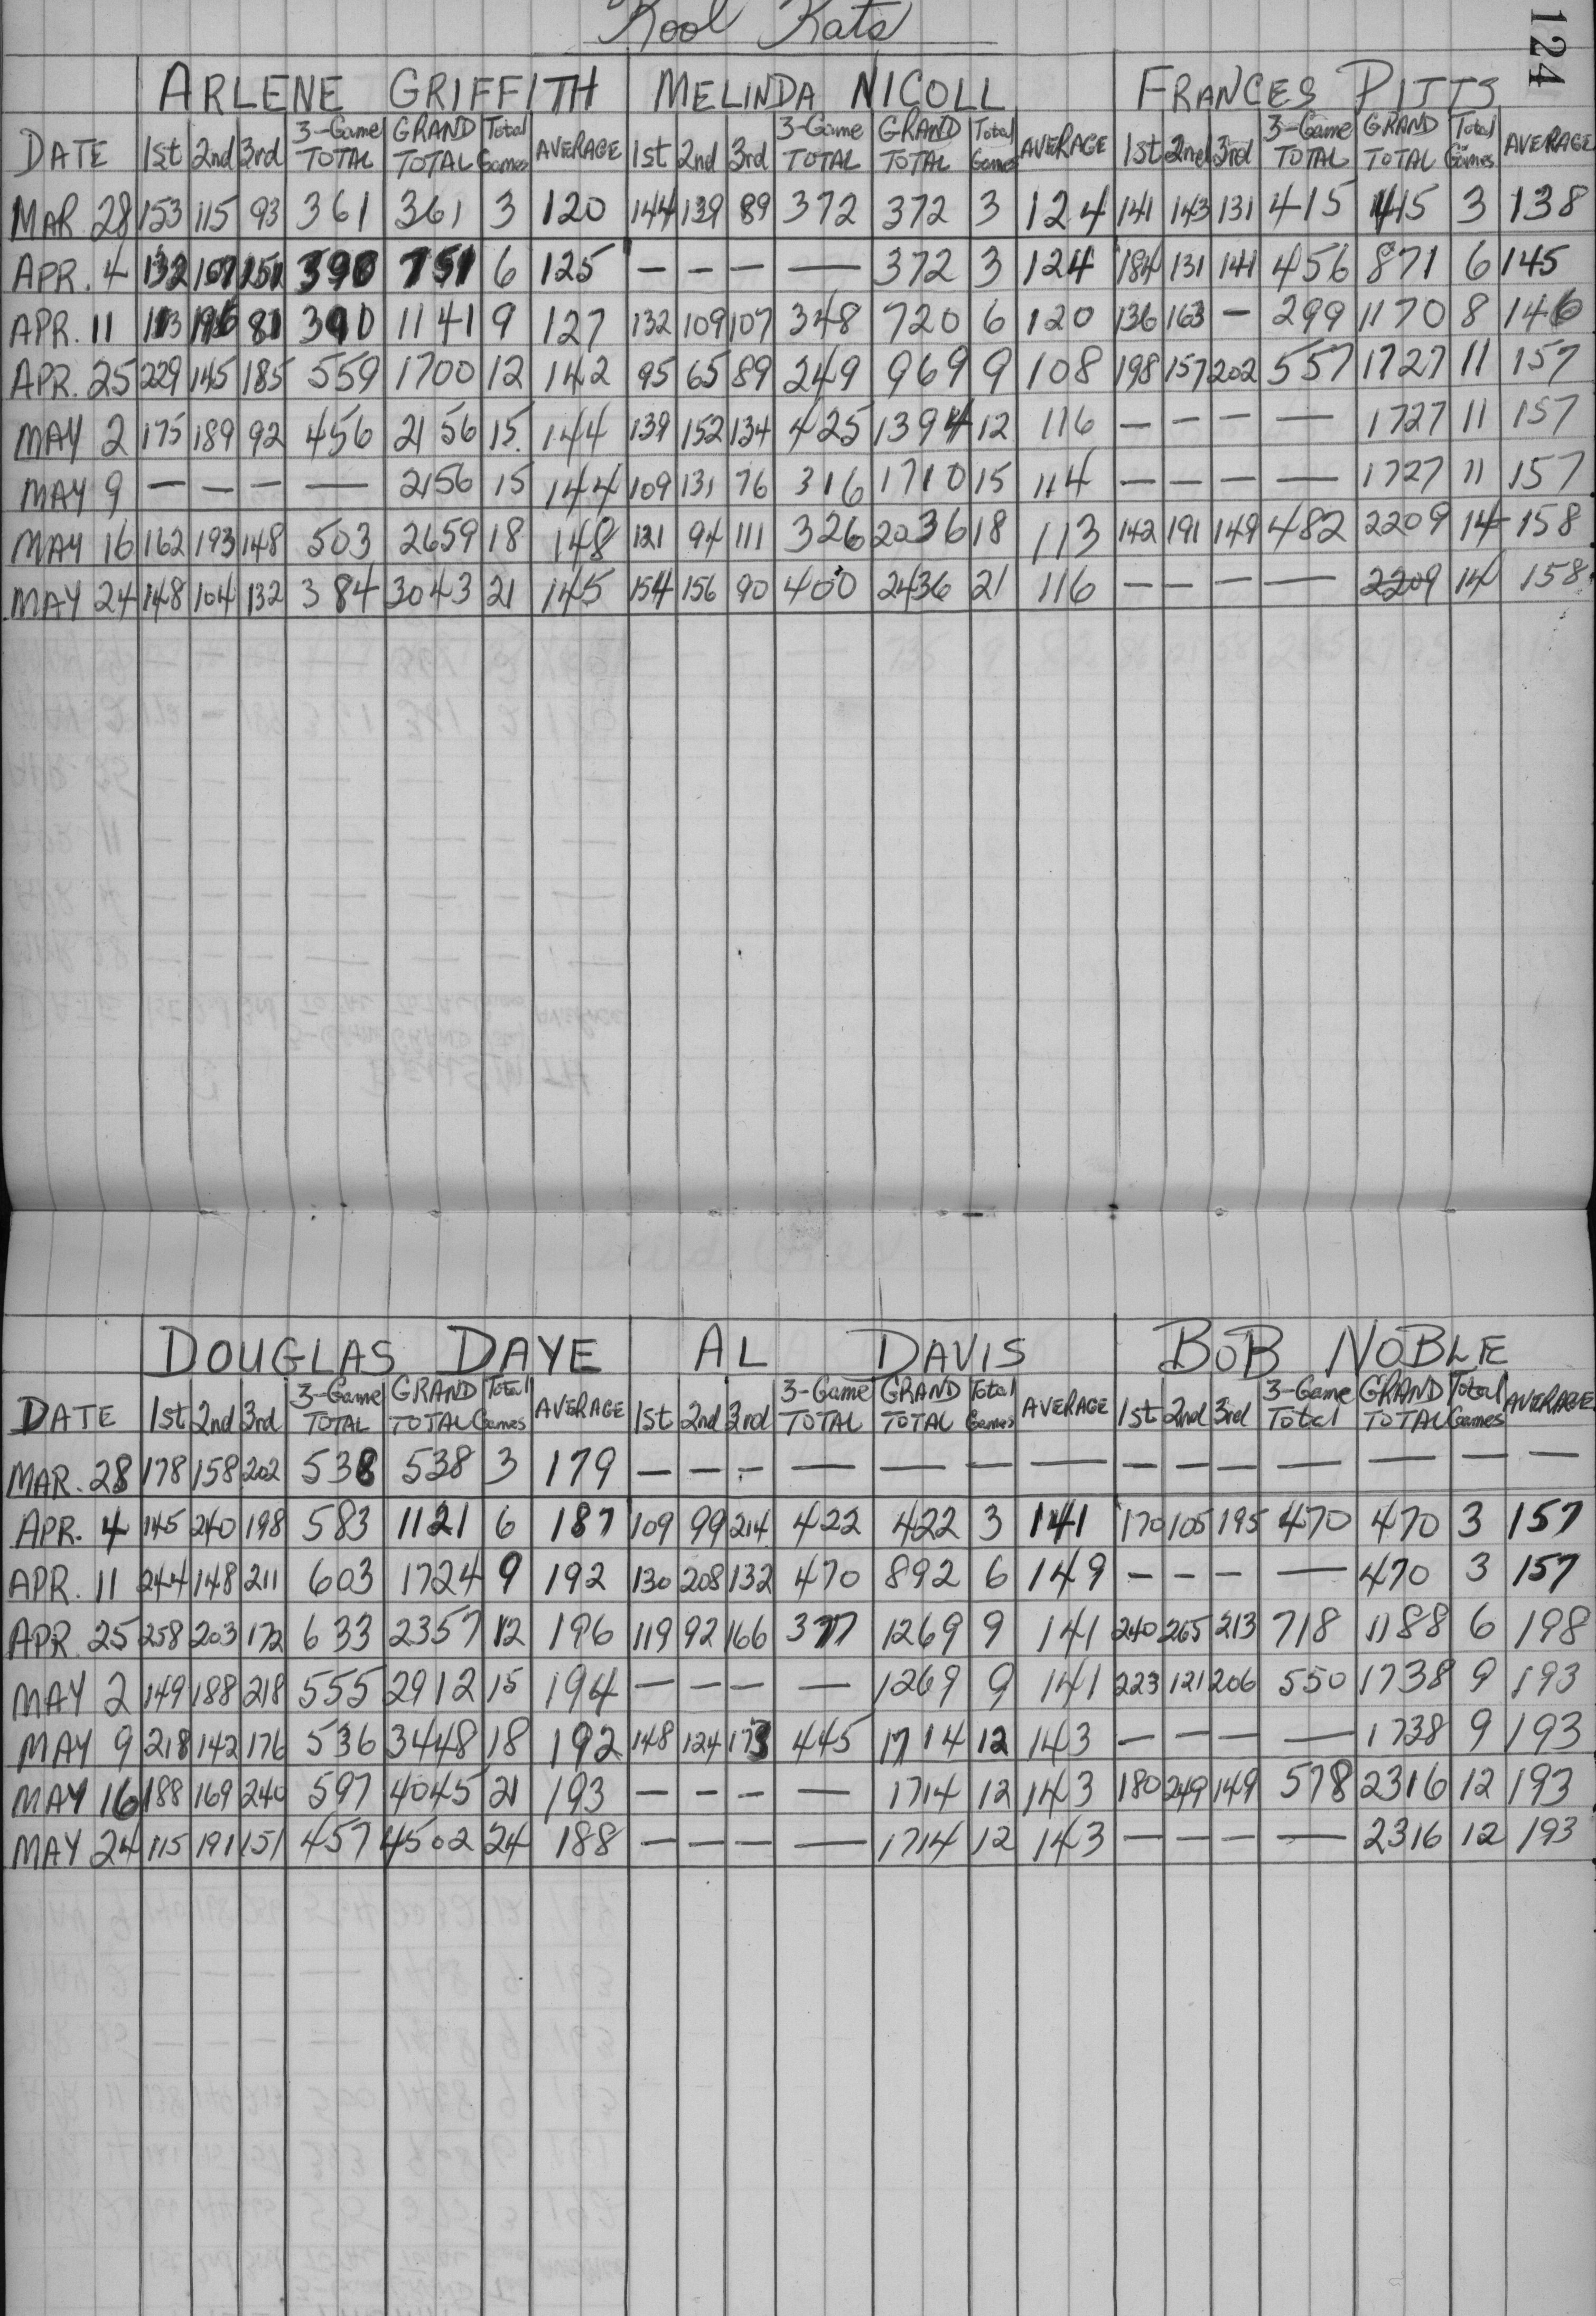 Kool Kats
124
ARLENE GRIFFITH MELINDA NICOLL FRANCES PITTS
DATE 1st 2nd 3rd 3-Game TOTAL GRAND TOTAL Total Games AVERAGE 1st 2nd 3rd 3-Game TOTAL GRAND TOTAL Total Games AVERAGE 1st 2nd 3rd 3-Game TOTAL GRAND TOTAL Total Games AVERAGE
MAR 28 153 115 93 361 361 3 120 144 139 89 372 372 3 124 141 143 131 415 415 3 138
APR. 4 132 107 151 390 751 6 125 — — — — 372 3 124 184 131 141 456 871 6 145
APR. 11 113 196 81 390 1141 9 127 132 109 107 348 720 6 120 136 163 — 299 1170 8 146
APR. 25 229 145 185 559 1700 12 142 95 65 89 249 969 9 108 198 157 202 557 1727 11 157
MAY 2 175 189 92 456 2156 15 144 139 152 134 425 1394 12 116 — — — — 1727 11 157
MAY 9 — — — — 2156 15 144 109 131 76 316 1710 15 114 — — — — 1727 11 157
MAY 16 162 193 148 503 2659 18 148 121 94 111 326 2036 18 113 142 191 149 482 2209 14 158
MAY 24 148 104 132 384 3043 21 145 154 156 90 400 2436 21 116 — — — — 2209 14 158
DOUGLAS DAYE AL DAVIS BOB NOBLE
DATE 1st 2nd 3rd 3-Game TOTAL GRAND TOTAL Total Games AVERAGE 1st 2nd 3rd 3-Game TOTAL GRAND TOTAL Total Games AVERAGE 1st 2nd 3rd 3-Game Total GRAND TOTAL Total Games AVERAGE
MAR. 28 178 158 202 538 538 3 179 — — — — — — — — — — — — — —
APR. 4 145 240 198 583 1121 6 187 109 99 214 422 422 3 141 170 105 195 470 470 3 157
APR. 11 244 148 211 603 1724 9 192 130 208 132 470 892 6 149 — — — — 470 3 157
APR. 25 258 203 172 633 2357 12 196 119 92 166 377 1269 9 141 240 265 213 718 1188 6 198
MAY 2 149 188 218 555 2912 15 194 — — — — 1269 9 141 223 121 206 550 1738 9 193
MAY 9 218 142 176 536 3448 18 192 148 124 173 445 1714 12 143 — — — — 1738 9 193
MAY 16 188 169 240 597 4045 21 193 — — — — 1714 12 143 180 249 149 578 2316 12 193
MAY 24 115 191 151 457 4502 24 188 — — — — 1714 12 143 — — — — 2316 12 193